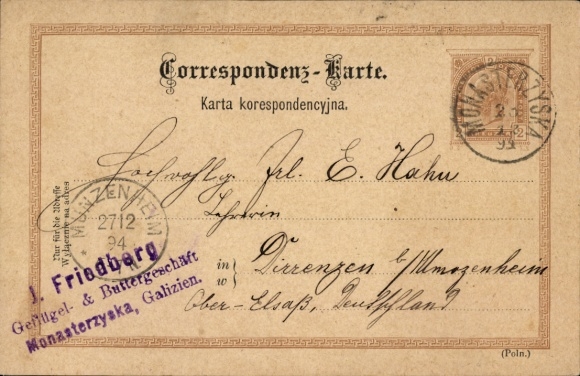 Correspondenz-Karte.
Karta korespondencyjna.
MONASTERZYSKA
94
Hochwohlg. Frl. E. Hahn
Lehrerin
Nur für die Adresse
Wyłącznie na adres
MUNZENHEIM
27 12
94
J. Friedberg
Geflügel- & Buttergeschäft
Monasterzyska, Galizien.
in
w
Dirrenzen b/Munzenheim
Ober-Elsaß, Deutschland
(Poln.)